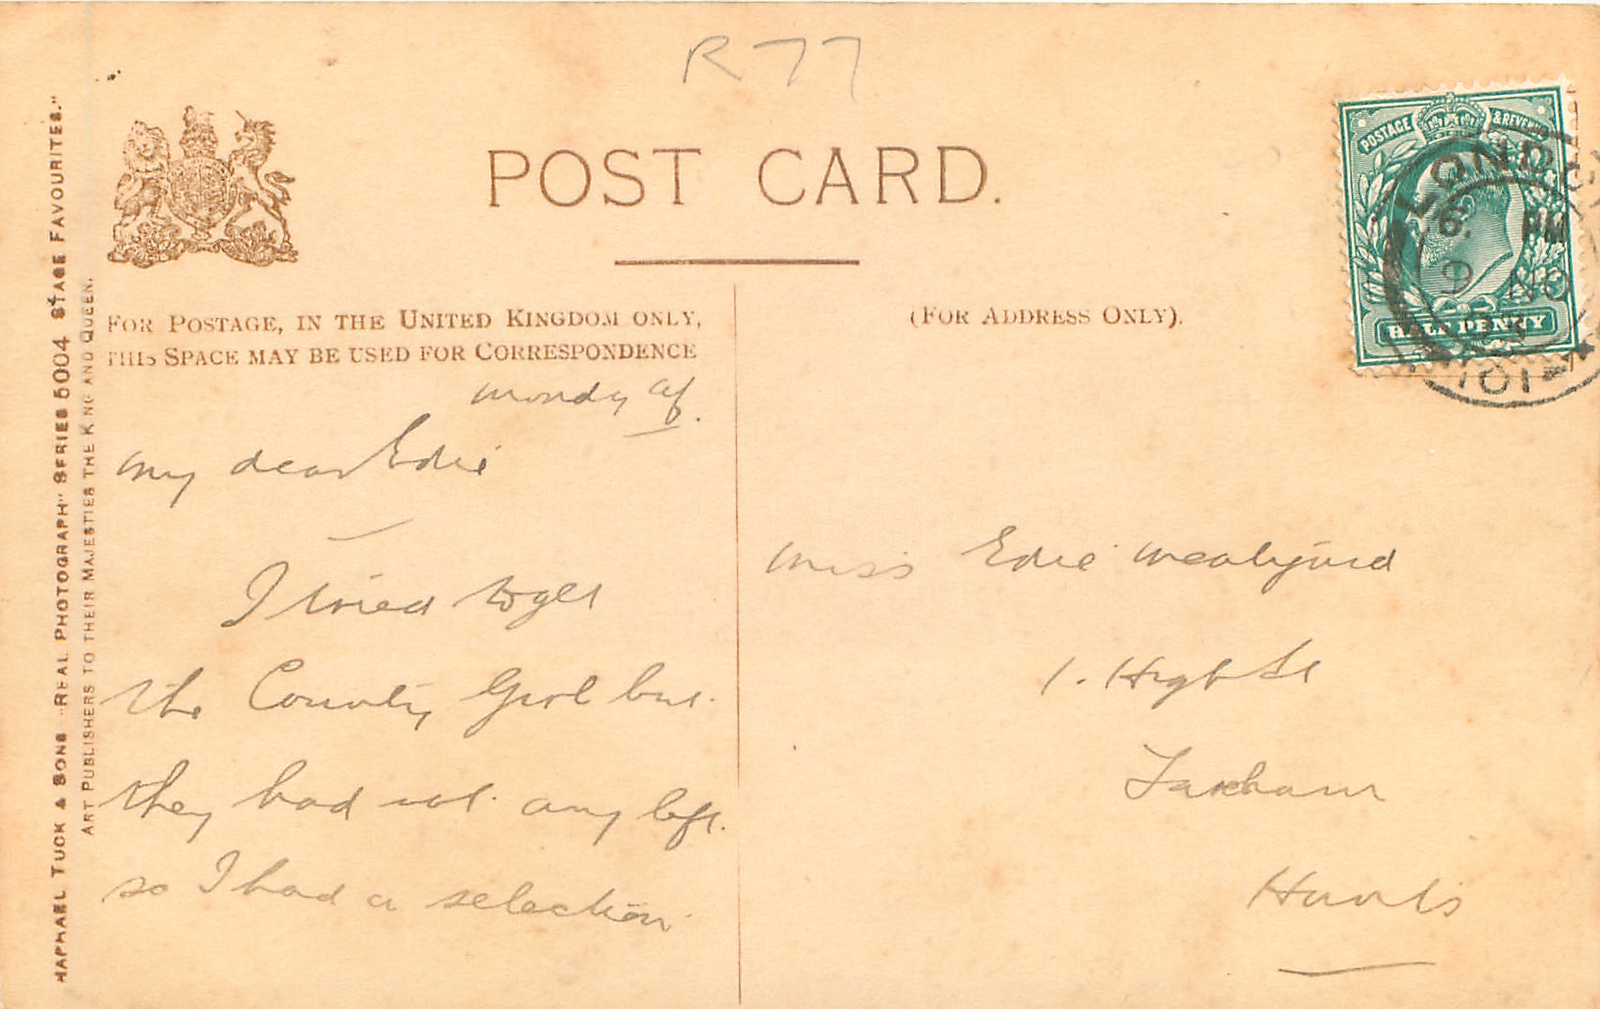 R77
POST CARD.
FOR POSTAGE, IN THE UNITED KINGDOM ONLY,
THIS SPACE MAY BE USED FOR CORRESPONDENCE
(FOR ADDRESS ONLY).
POSTAGE & REVENUE
HALF PENNY
LONDON
6. PM
9 NO
101
Monday af.
My dear Edie
I tried to get
the County Girl but
they had not any left.
so I had a selection
Miss Edie
1. High St
Fareham
Hants
RAPHAEL TUCK & SONS "REAL PHOTOGRAPH" SERIES 5004 STAGE FAVOURITES."
ART PUBLISHERS TO THEIR MAJESTIES THE KING AND QUEEN.